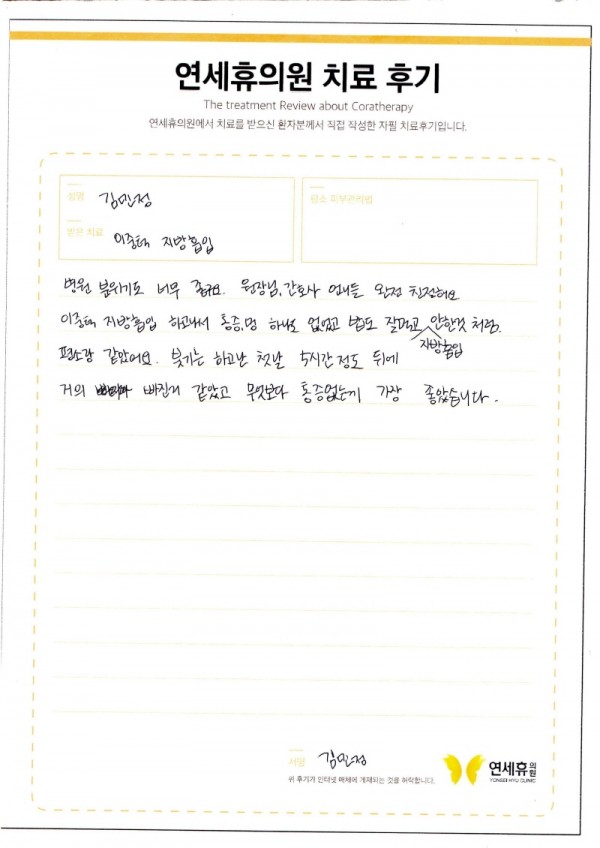 연세휴의원 치료 후기
The treatment Review about Coratherapy
연세휴의원에서 치료를 받으신 환자분께서 직접 작성한 자필 치료후기입니다.
성명 김민정
받은 치료 이중턱 지방흡입
평소 피부관리법
병원 분위기도 너무 좋구요. 원장님, 간호사 언니들 완전 친절해요
이중턱 지방흡입 하고나서 통증, 멍 하나도 없었고 밥도 잘먹고 지방흡입 안한것 처럼.
평소랑 같았어요. 붓기는 하고난 첫날 5시간정도 뒤에
거의 빠진거 같았고 무엇보다 통증없는게 가장 좋았습니다.
서명 김민정
위 후기가 인터넷 매체에 게재되는 것을 허락합니다.
연세휴의원
YONSEI HYU CLINIC